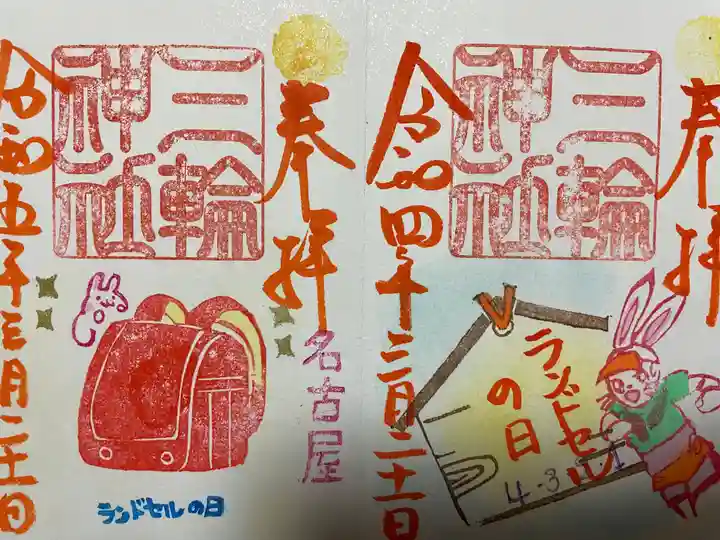 奉拝
三輪
神社
令和四年三月二十一日
ランドセル
の日
奉拝
名古屋
三輪
神社
令和五年三月二十一日
ランドセルの日